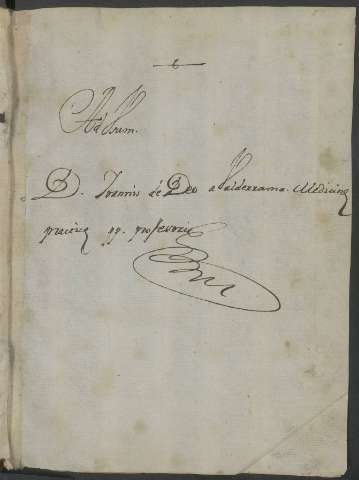 Ad Usum.
D. Joannis de Deo a Valderrama Medicinę
practicę pp. professoris